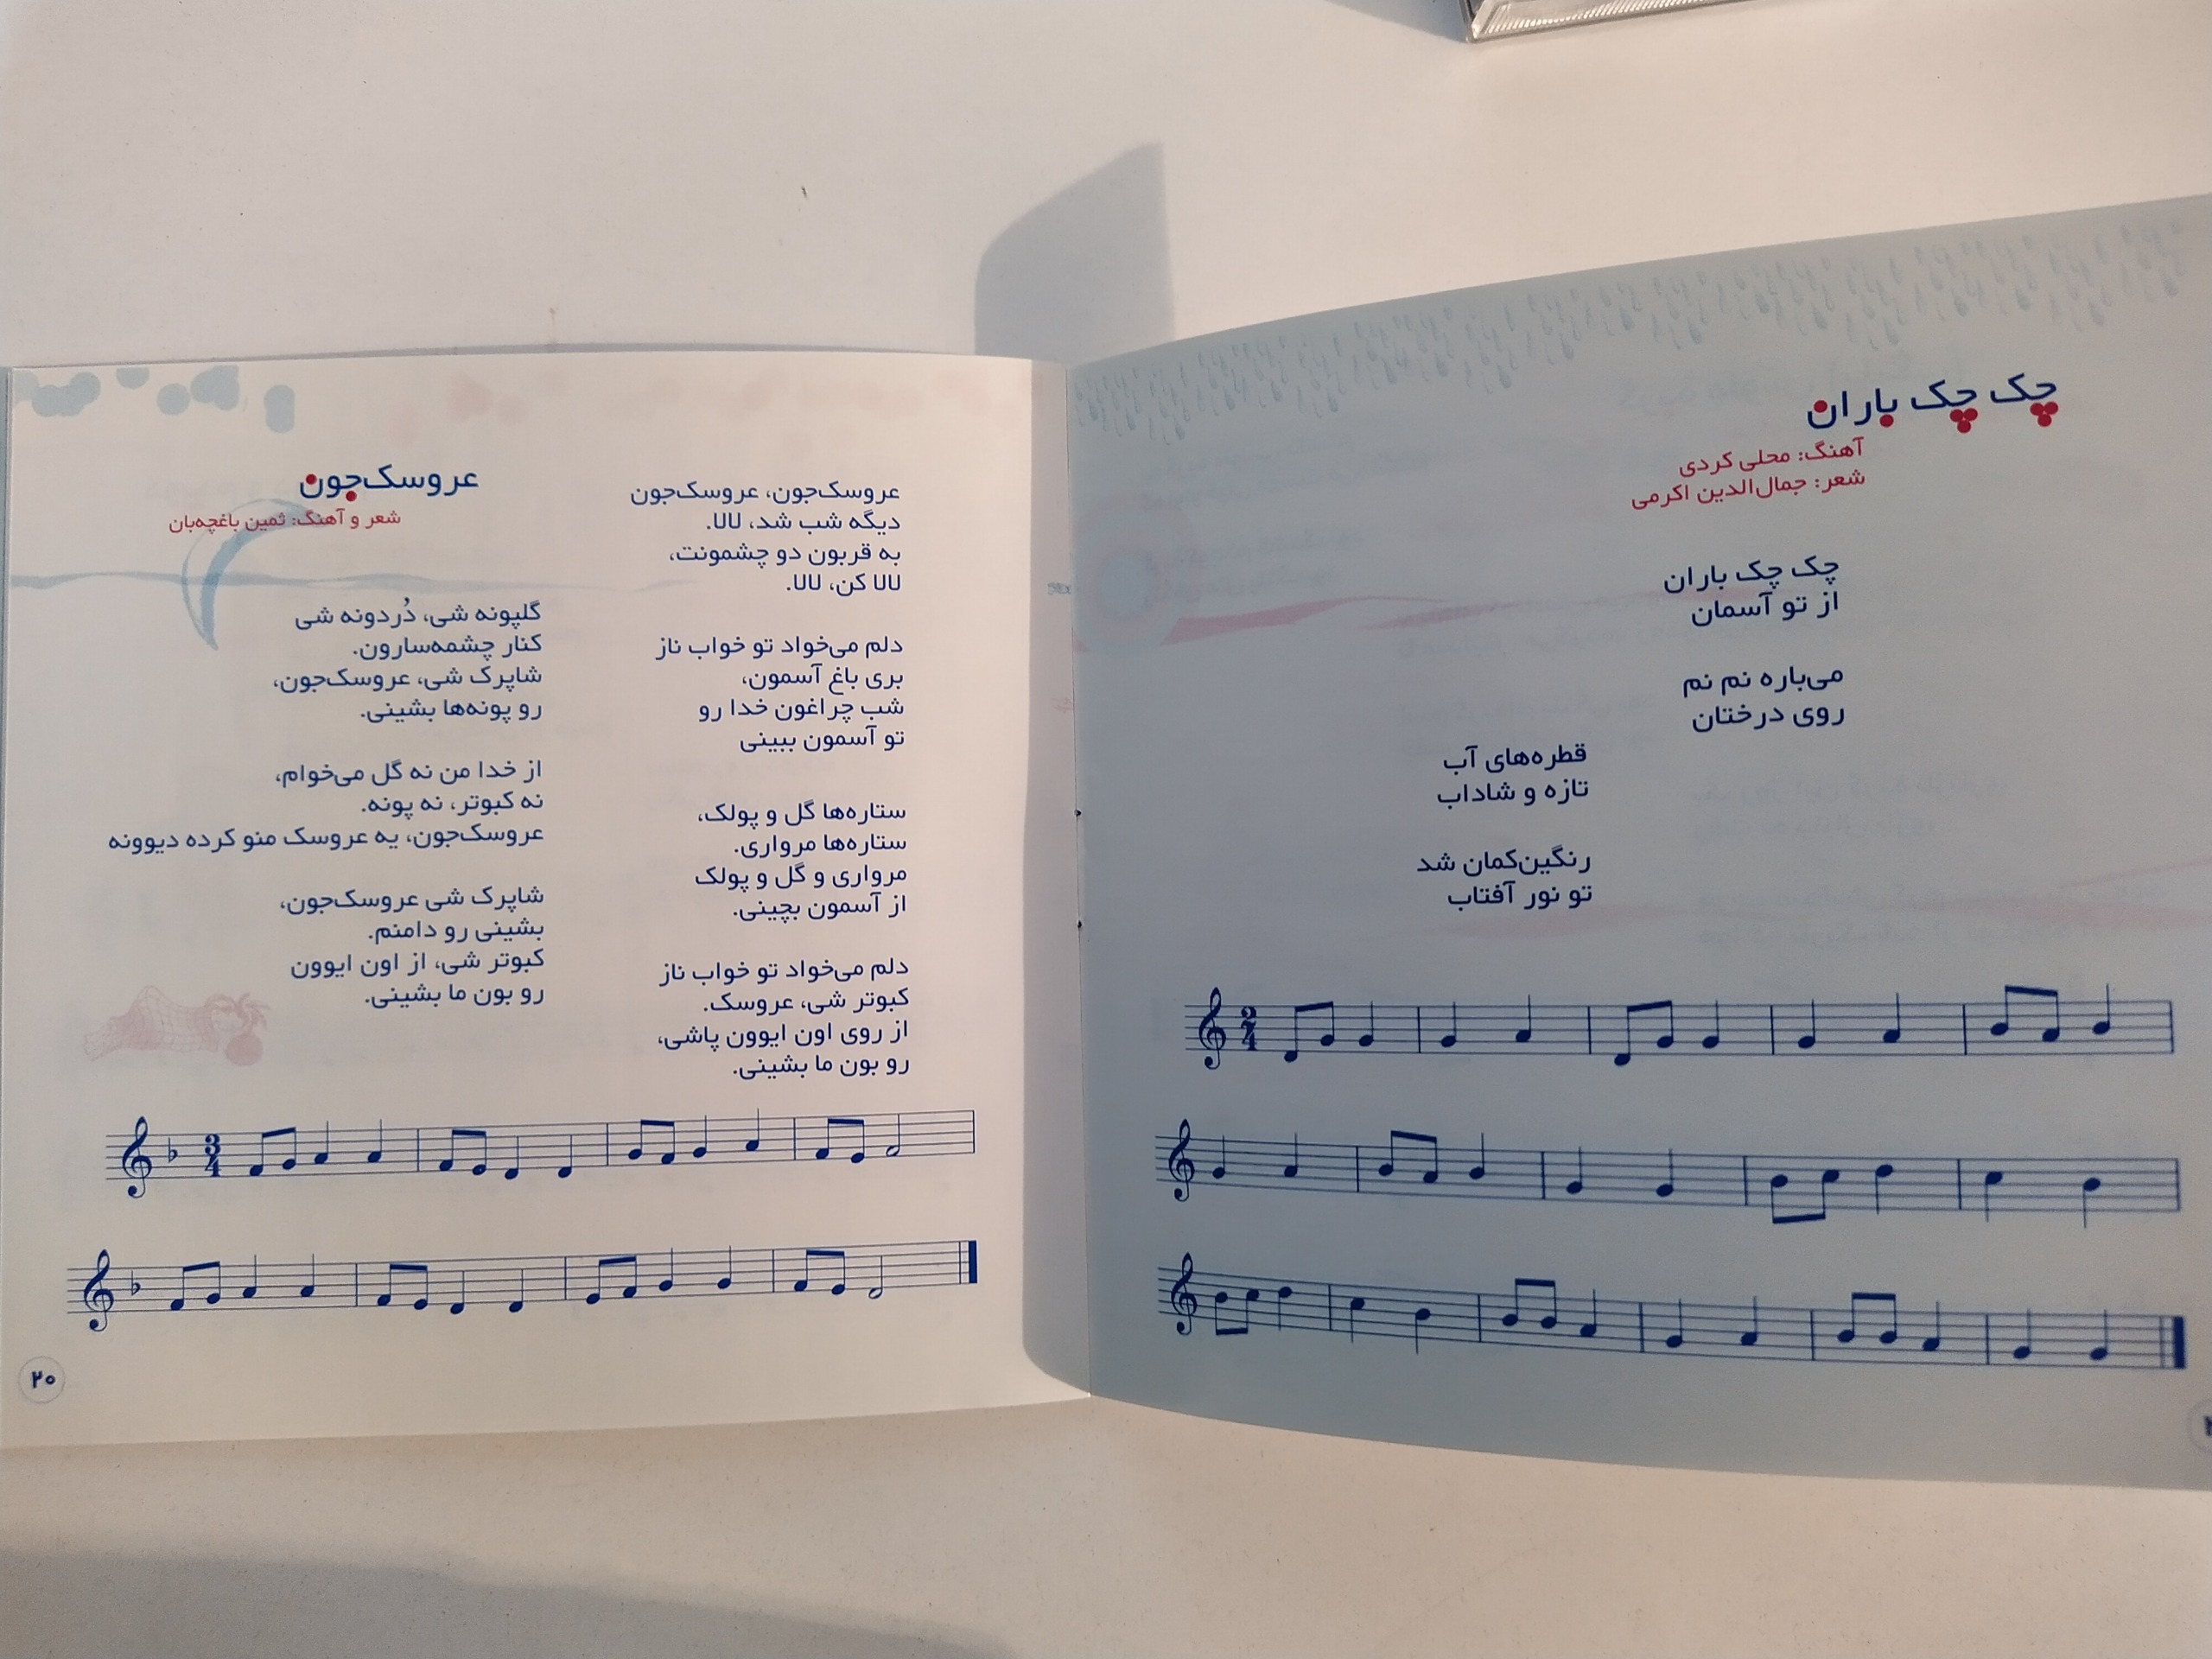 چک چک باران
آهنگ: محلی کردی
شعر: جمال‌الدین اکرمی
چک چک باران
از تو آسمان
می‌باره نم نم
روی درختان
قطره‌های آب
تازه و شاداب
رنگین‌کمان شد
تو نور آفتاب
2
4
عروسک‌جون
شعر و آهنگ: ثمین باغچه‌بان
عروسک‌جون، عروسک‌جون
دیگه شب شد، لالا.
به قربون دو چشمونت،
لالا کن، لالا.
دلم می‌خواد تو خواب ناز
بری باغ آسمون،
شب چراغون خدا رو
تو آسمون ببینی
ستاره‌ها گل و پولک،
ستاره‌ها مرواری.
مرواری و گل و پولک
از آسمون بچینی.
دلم می‌خواد تو خواب ناز
کبوتر شی، عروسک.
از روی اون ایوون پاشی،
رو بون ما بشینی.
گلپونه شی، دُردونه شی
کنار چشمه‌سارون.
شاپرک شی، عروسک‌جون،
رو پونه‌ها بشینی.
از خدا من نه گل می‌خوام،
نه کبوتر، نه پونه.
عروسک‌جون، یه عروسک منو کرده دیوونه
شاپرک شی عروسک‌جون،
بشینی رو دامنم.
کبوتر شی، از اون ایوون
رو بون ما بشینی.
3
4
۲۰